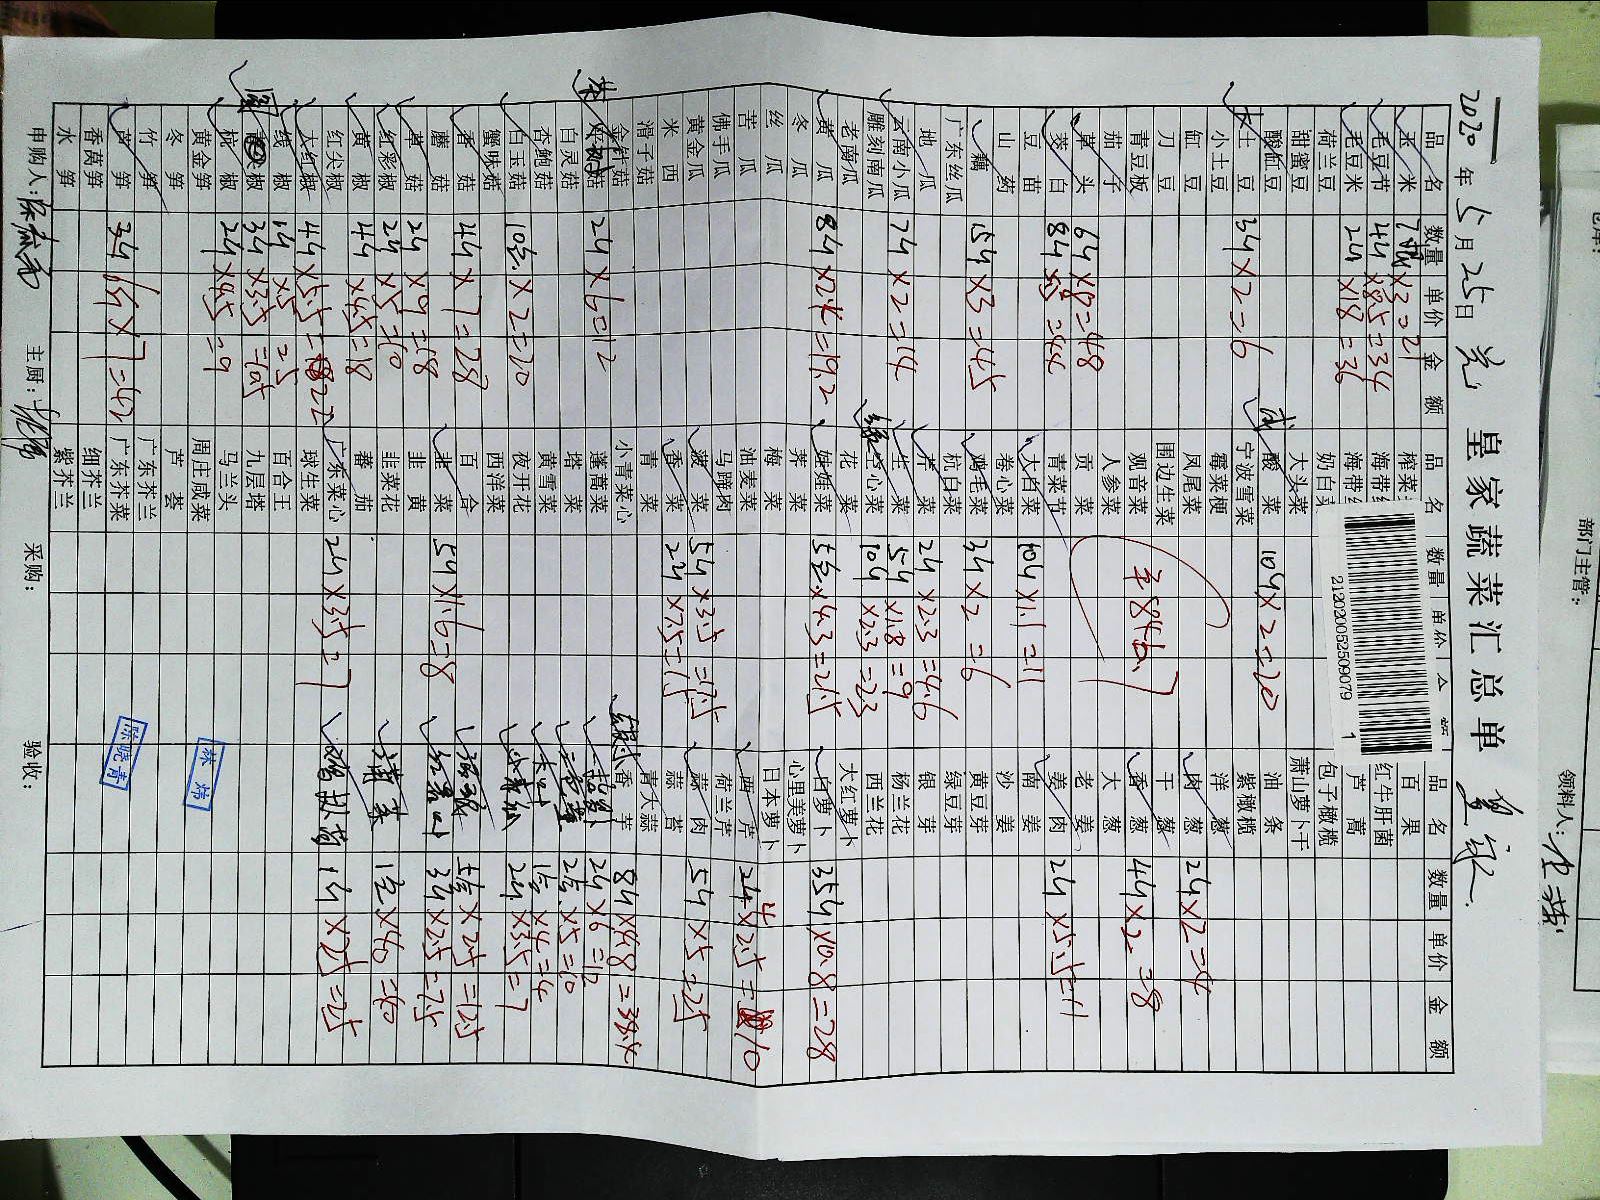 2020年5月25日
皇家蔬菜汇总单
品名 数量 单价 金额 品名 数量 单价 品名 数量 单价 金额
玉米 7 ×3=21 榨菜 百果
毛豆节 4斤×8.5=34 海带 红牛肝菌
毛豆米 2斤×18=36 海带 芦蒿
荷兰豆 奶白 包子橄榄
甜蜜豆 大头菜 萧山萝卜干
酸缸豆 酸菜 10斤×2=20 油条
大土豆 3斤×2=6 宁波雪菜 紫橄榄
小土豆 霉菜梗 洋葱
缸豆 凤尾菜 肉葱 2斤×2=4
刀豆 围边生菜 干葱
青豆板 观音菜 香葱 4斤×2=8
茄子 人参菜 大葱
草头 6斤×8=48 贡菜 老姜
茭白 8斤×5.5=44 青菜节 姜肉 2斤×5.5=11
豆苗 大白菜 10斤×1.1=11 南姜
山药 卷心菜 沙姜
藕 15斤×3=45 鸡毛菜 3斤×2=6 黄豆芽
广东丝瓜 杭白菜 绿豆芽
地瓜 芹菜 2斤×2.3=4.6 银芽
云南小瓜 7斤×2=14 生菜 5斤×1.8=9 杨兰花
雕刻南瓜 空心菜 10斤×2.3=23 西兰花
老南瓜 花菜 大红萝卜
黄瓜 8斤×2.4=19.2 娃娃菜 5包×4.3=21.5 白萝卜 35斤×0.8=28
冬瓜 荠菜 心里美萝卜
丝瓜 梅菜 日本萝卜
苦瓜 油麦菜 西芹 4×2.5=10
佛手瓜 马蹄肉 荷兰芹
黄金瓜 菠菜 5斤×3.5=17.5 蒜肉 5斤×5=25
米西 香菜 2斤×7.5=15 蒜苔
滑子菇 青菜 青大蒜
金针菇 小青菜心 香芋 8斤×4.8=38.4
2斤×6=12 蓬蒿菜 2斤×6=12
白灵菇 塔菜 2 ×5=10
杏鲍菇 黄雪菜 1 ×4=4
白玉菇 10包×2=20 夜开花 2斤×3.5=7
蟹味菇 西洋菜
香菇 4斤×7=28 百合 5 ×2.5=12.5
蘑菇 韭菜 5斤×1.6=8 3斤×2.5=7.5
草菇 2斤×9=18 韭黄
红彩椒 2斤×5=10 韭菜花 1 ×40=40
黄椒 4斤×4.5=18 蕃茄
红尖椒 广东菜心 2斤×3.5=7 1斤×25=25
大红椒 4斤×5.5=22 球生菜
线椒 ×5=2.5 百合王
尖椒 3斤×3.5=10.5 九层塔
杭椒 2斤×4.5=9 马兰头
黄金笋 周庄咸菜
冬笋 芦荟
竹笋 广东芥兰
芦笋 广东芥菜
香莴笋 细芥兰
水笋 紫芥兰
¥846.7
申购人: 主厨: 采购: 验收:
林炜
陈晓青
2120200525090079 1
部门主管:
领料人: